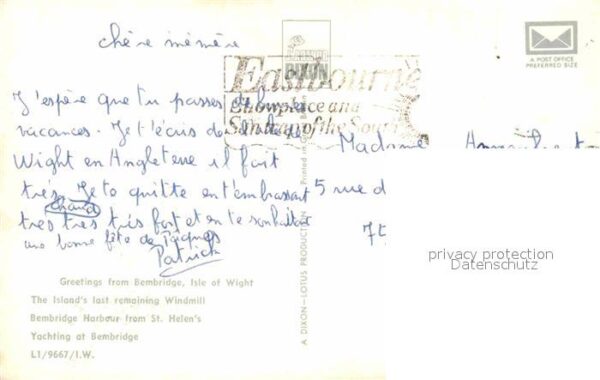 chère mémère
J'espère que tu passes de bonnes
vacances. Je t'écris de l'île de
Wight en Angleterre il fait
très chaud Je te quitte en t'embrassant
très très très fort et en te souhaitant
une bonne fête de Pâques
Patrick
Greetings from Bembridge, Isle of Wight
The Island's last remaining Windmill
Bembridge Harbour from St. Helen's
Yachting at Bembridge
L1/9667/I.W.
DIXON
Eastbourne
Showplace and
Suntrap of the South
A DIXON-LOTUS PRODUCTION
Printed in Great Britain
A POST OFFICE
PREFERRED SIZE
Madame
5 rue d
privacy protection
Datenschutz